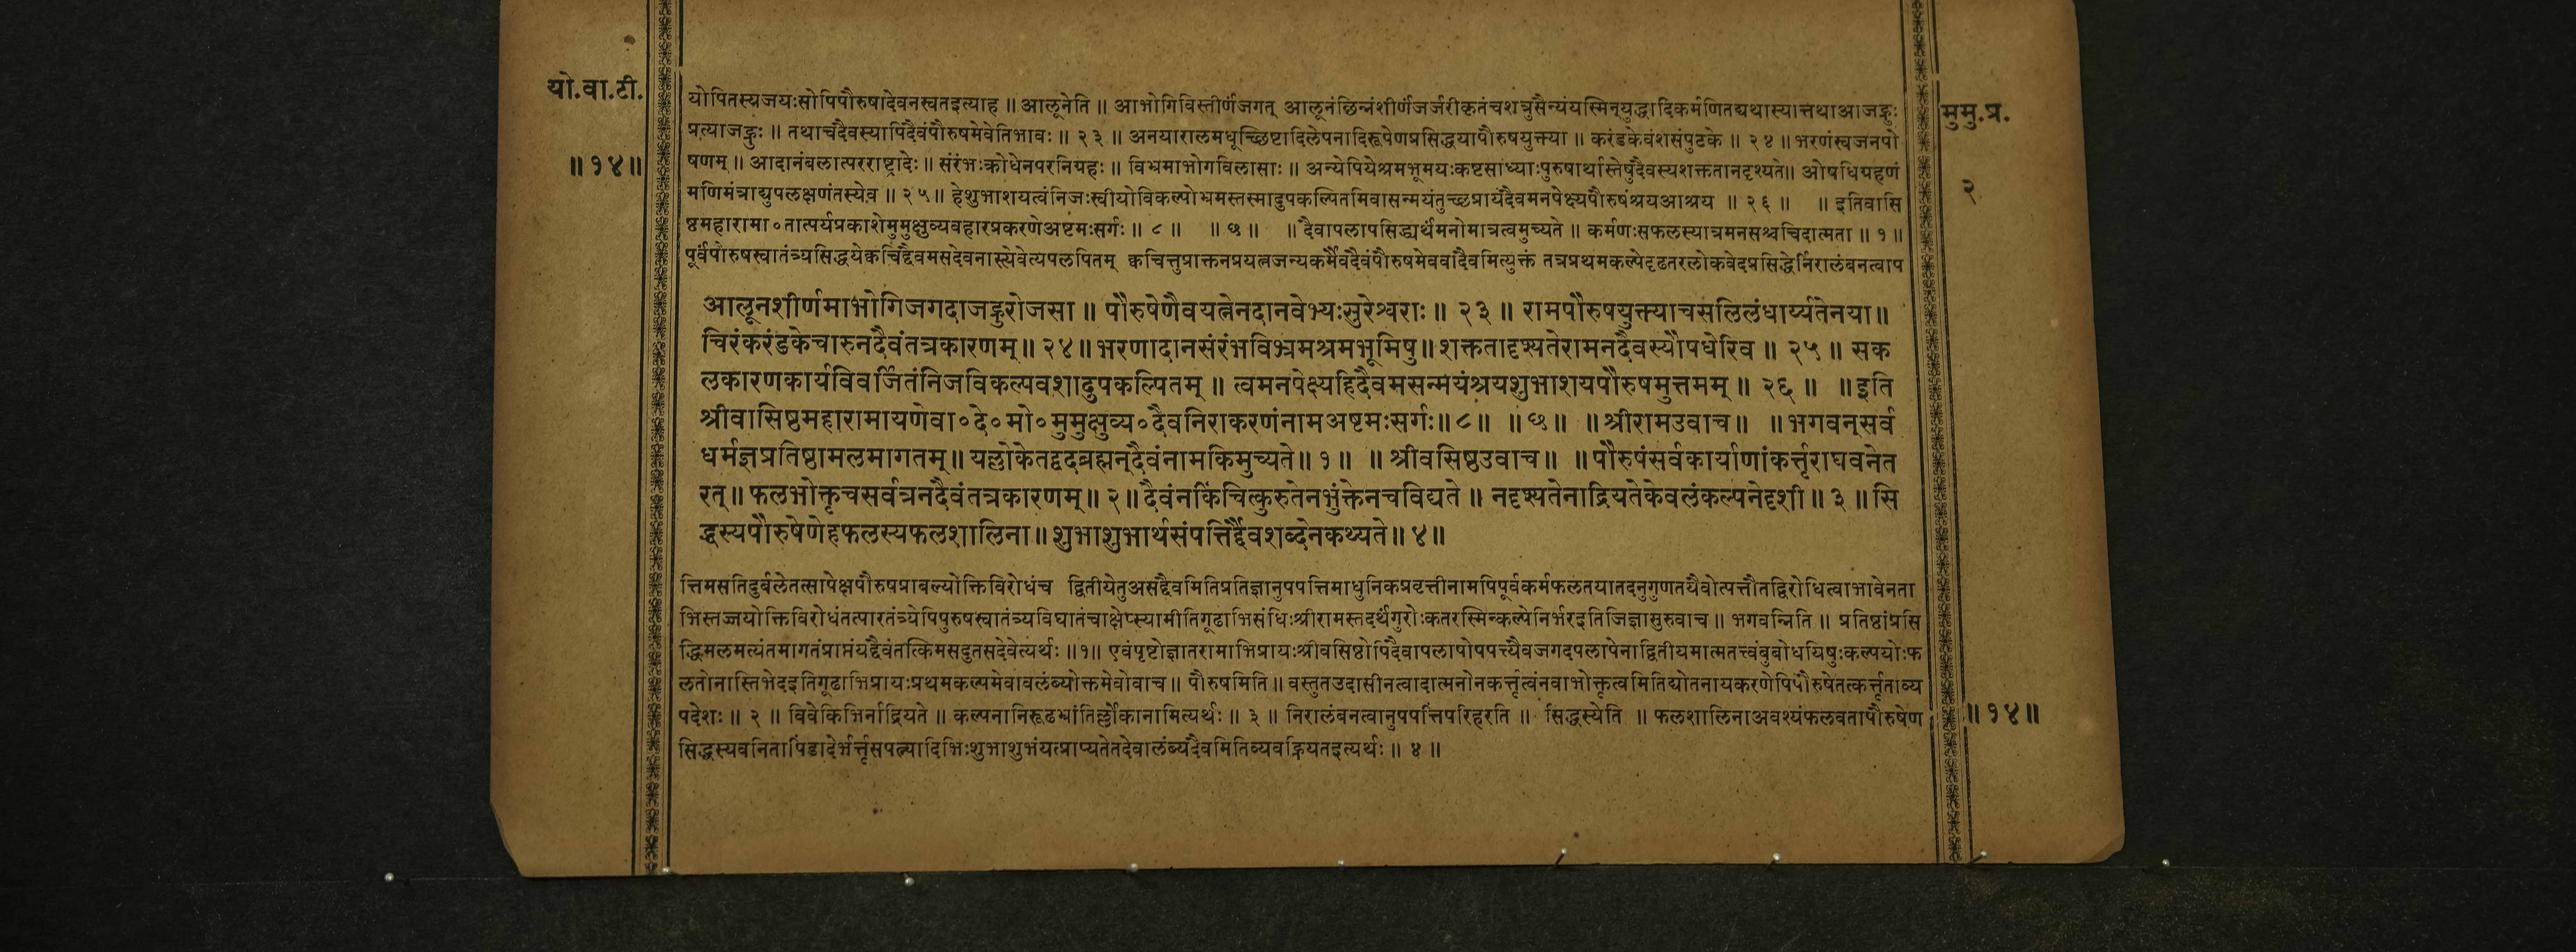 यो.वा.टी.
॥१४॥
योपितस्यजयःसोपिपौरुषादेवनस्वतइत्याह ॥ आलूनेति ॥ आभोगिविस्तीर्णंजगत् आलूनंछिन्नंशीर्णंजर्जरीकृतंचशत्रुसैन्यंयस्मिन्युद्धादिकर्मणितद्यथास्यात्तथाआजह्रुः
प्रत्याजह्रुः ॥ तथाचदैवस्यापिदैवंपौरुषमेवेतिभावः ॥ २३ ॥ अनयारालमधूच्छिष्टादिलेपनादिरूपेणप्रसिद्धयापौरुषयुक्त्या ॥ करंडकेवंशसंपुटके ॥ २४ ॥ भरणंस्वजनपो
षणम् ॥ आदानंबलात्परराष्ट्रादेः ॥ संरंभःक्रोधेनपरनिग्रहः ॥ विभ्रमाभोगविलासाः ॥ अन्येपियेश्रमभूमयःकष्टसाध्याःपुरुषार्थास्तेषुदैवस्यशक्ततानदृश्यते॥ ओषधिग्रहणं
मणिमंत्राद्युपलक्षणंतस्येव ॥ २५ ॥ हेशुभाशयत्वंनिजःस्वीयोविकल्पोभ्रमस्तस्मादुपकल्पितमिवासन्मयंतुच्छप्रायंदैवमनपेक्ष्यपौरुषंश्रयआश्रय ॥ २६ ॥ ॥ इतिवासि
ष्ठमहारामा॰तात्पर्यप्रकाशेमुमुक्षुव्यवहारप्रकरणेअष्टमःसर्गः ॥ ८ ॥ ॥ छ ॥ ॥ दैवापलापसिद्ध्यर्थंमनोमात्रत्वमुच्यते ॥ कर्मणःसफलस्यात्रमनसश्चचिदात्मता ॥ १ ॥
पूर्वंपौरुषस्वातंत्र्यसिद्धयेक्वचिद्दैवमसदेवनास्त्येवेत्यपलपितम् क्वचित्तुप्राक्तनप्रयत्नजन्यकर्मैवदैवंपौरुषमेववादैवमित्युक्तं तत्रप्रथमकल्पेदृढतरलोकवेदप्रसिद्धेर्निरालंबनत्वाप
आलूनशीर्णमाभोगिजगदाजह्रुरोजसा ॥ पौरुषेणैवयत्नेनदानवेभ्यःसुरेश्वराः ॥ २३ ॥ रामपौरुषयुक्त्याचसलिलंधार्य्यतेनया॥
चिरंकरंडकेचारुनदैवंतत्रकारणम्॥ २४॥ भरणादानसंरंभविभ्रमश्रमभूमिषु॥ शक्ततादृश्यतेरामनदैवस्यौषधेरिव ॥ २५ ॥ सक
लकारणकार्यविवर्जितंनिजविकल्पवशादुपकल्पितम् ॥ त्वमनपेक्ष्यहिदैवमसन्मयंश्रयशुभाशयपौरुषमुत्तमम्॥ २६ ॥ ॥ इति
श्रीवासिष्ठमहारामायणेवा॰दे॰मो॰मुमुक्षुव्य॰दैवनिराकरणंनामअष्टमःसर्गः॥८॥ ॥ छ॥ ॥ श्रीरामउवाच॥ ॥ भगवन्सर्व
धर्मज्ञप्रतिष्ठामलमागतम्॥ यल्लोकेतद्वदब्रह्मन्दैवंनामकिमुच्यते॥ १॥ ॥ श्रीवसिष्ठउवाच॥ ॥ पौरुषंसर्वकार्याणांकर्त्तृराघवनेत
रत्॥ फलभोक्तृचसर्वत्रनदैवंतत्रकारणम्॥ २॥ दैवंनकिंचित्कुरुतेनभुंक्तेनचविद्यते ॥ नदृश्यतेनाद्रियतेकेवलंकल्पनेदृशी॥ ३ ॥ सि
द्धस्यपौरुषेणेहफलस्यफलशालिना॥ शुभाशुभार्थसंपत्तिर्दैवशब्देनकथ्यते॥ ४॥
त्तिमसतिदुर्बलेतत्सापेक्षपौरुषप्राबल्योक्तिविरोधंच द्वितीयेतुअसद्दैवमितिप्रतिज्ञानुपपत्तिमाधुनिकप्रवृत्तीनामपिपूर्वकर्मफलतयातदनुगुणतयैवोत्पत्तौतद्विरोधित्वाभावेनता
भिस्तज्जयोक्तिविरोधंतत्पारतंत्र्येपिपुरुषस्वातंत्र्यविघातंचाक्षेप्स्यामीतिगूढाभिसंधिःश्रीरामस्तदर्थंगुरोःकतरस्मिन्कल्पेनिर्भरइतिजिज्ञासुरुवाच ॥ भगवन्निति ॥ प्रतिष्ठांप्रसि
द्धिमलमत्यंतमागतंप्राप्तंयद्दैवंतत्किमसदुतसदेवेत्यर्थः ॥१॥ एवंपृष्टोज्ञातरामाभिप्रायःश्रीवसिष्ठोपिदैवापलापोपपत्त्यैवजगदपलापेनाद्वितीयमात्मतत्त्वंबुबोधयिषुःकल्पयोःफ
लतोनास्तिभेदइतिगूढाभिप्रायःप्रथमकल्पमेवावलंब्योक्तमेवोवाच॥ पौरुषमिति॥ वस्तुतउदासीनत्वादात्मनोनकर्त्तृत्वंनवाभोक्तृत्वमितिद्योतनायकरणेपिपौरुषेतत्कर्त्तृताव्य
पदेशः ॥ २ ॥ विवेकिभिर्नाद्रियते ॥ कल्पनानिरूढभ्रांतिर्ल्लोकानामित्यर्थः ॥ ३ ॥ निरालंबनत्वानुपपत्तिंपरिहरति ॥ सिद्धस्येति ॥ फलशालिनाअवश्यंफलवतापौरुषेण
सिद्धस्यवनितापिंडादेर्भर्त्तृसपत्न्यादिभिःशुभाशुभंयत्प्राप्यतेतदेवालंब्यदैवमितिव्यवह्रियतइत्यर्थः ॥ ४ ॥
मुमु.प्र.
२
॥१४॥